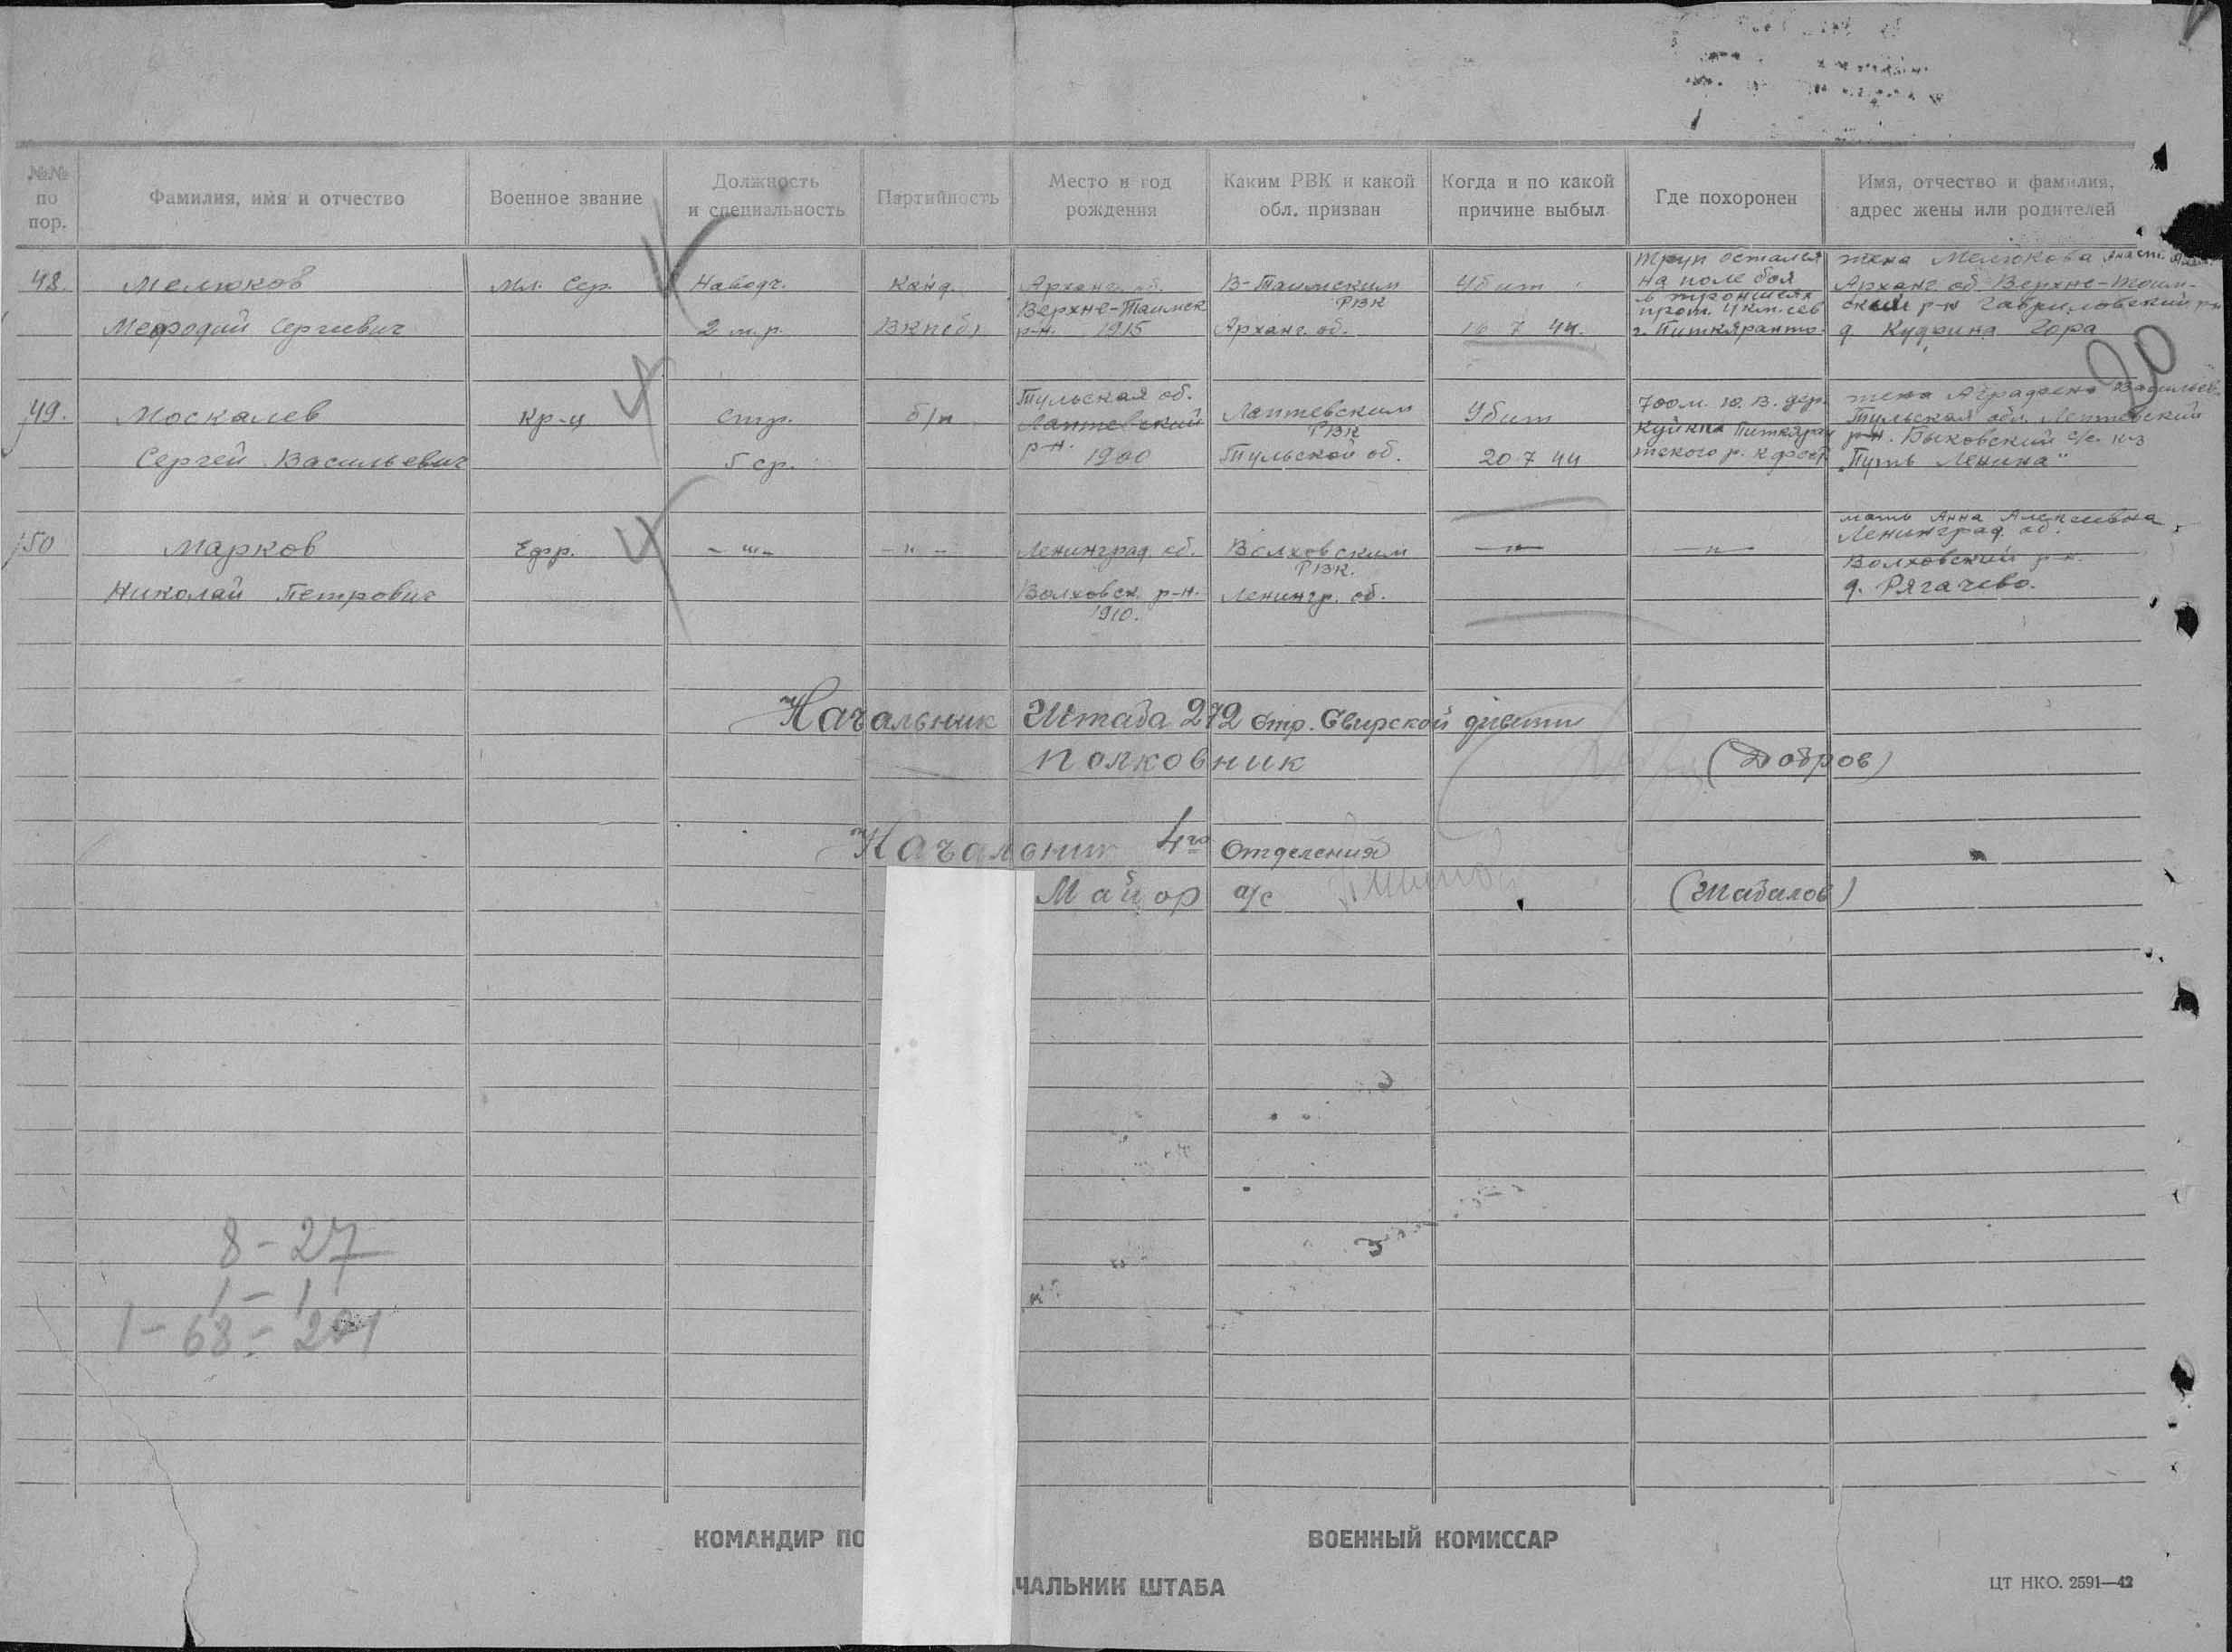 №№ по пор.
Фамилия, имя и отчество
Военное звание
Должность и специальность
Партийность
Место и год рождения
Каким РВК и какой обл. призван
Когда и по какой причине выбыл
Где похоронен
Имя, отчество и фамилия, адрес жены или родителей
48.
Мелюков
Мефодий Сергиевич
Мл. Сер.
Наводч.
2 м.р.
Канд.
ВКП(б)
Арханг. об.
Верхне-Таимск
р-н. 1915
В-Таимским
РВК
Арханг. об.
Убит
16 7 44.
Труп остался
на поле боя
в траншеях
4 км. сев
г. Питкяранто.
жена Мелюкова Анаст.
Арханг. об. Верхне-Тоим-
ский р-н Гавриловский
д. Кудрина Гора
20
49.
Москалев
Сергей Васильевич
Кр-ц
Стр.
5 ср.
б/п
Тульская об.
Лаптевский
р-н. 1900
Лаптевским
РВК
Тульской об.
Убит
20 7 44
700 м. ю. в. дер.
Куйкка Питкяран
тского р. К ф сср
жена Аграфена Васильев.
Тульская обл. Лаптевский
р-н. Быковский с/с. к-з
"Путь Ленина"
50
Марков
Николай Петрович
Ефр.
- " -
- " -
Ленинград. об.
Волховск. р-н.
1910.
Волховским
РВК.
Ленингр. об.
- " -
- " -
мать Анна Алексеевна
Ленинград. об.
Волховский р-н.
д. Рягачево.
Начальник Штаба 272 стр. Свирской дивизии
Полковник (Добров)
Начальник 4го Отделения
Майор а/с (Шабалов)
8 - 27
1 - 1
1 - 68 - 201
КОМАНДИР ПО
ВОЕННЫЙ КОМИССАР
ЧАЛЬНИК ШТАБА
ЦТ НКО. 2591—42